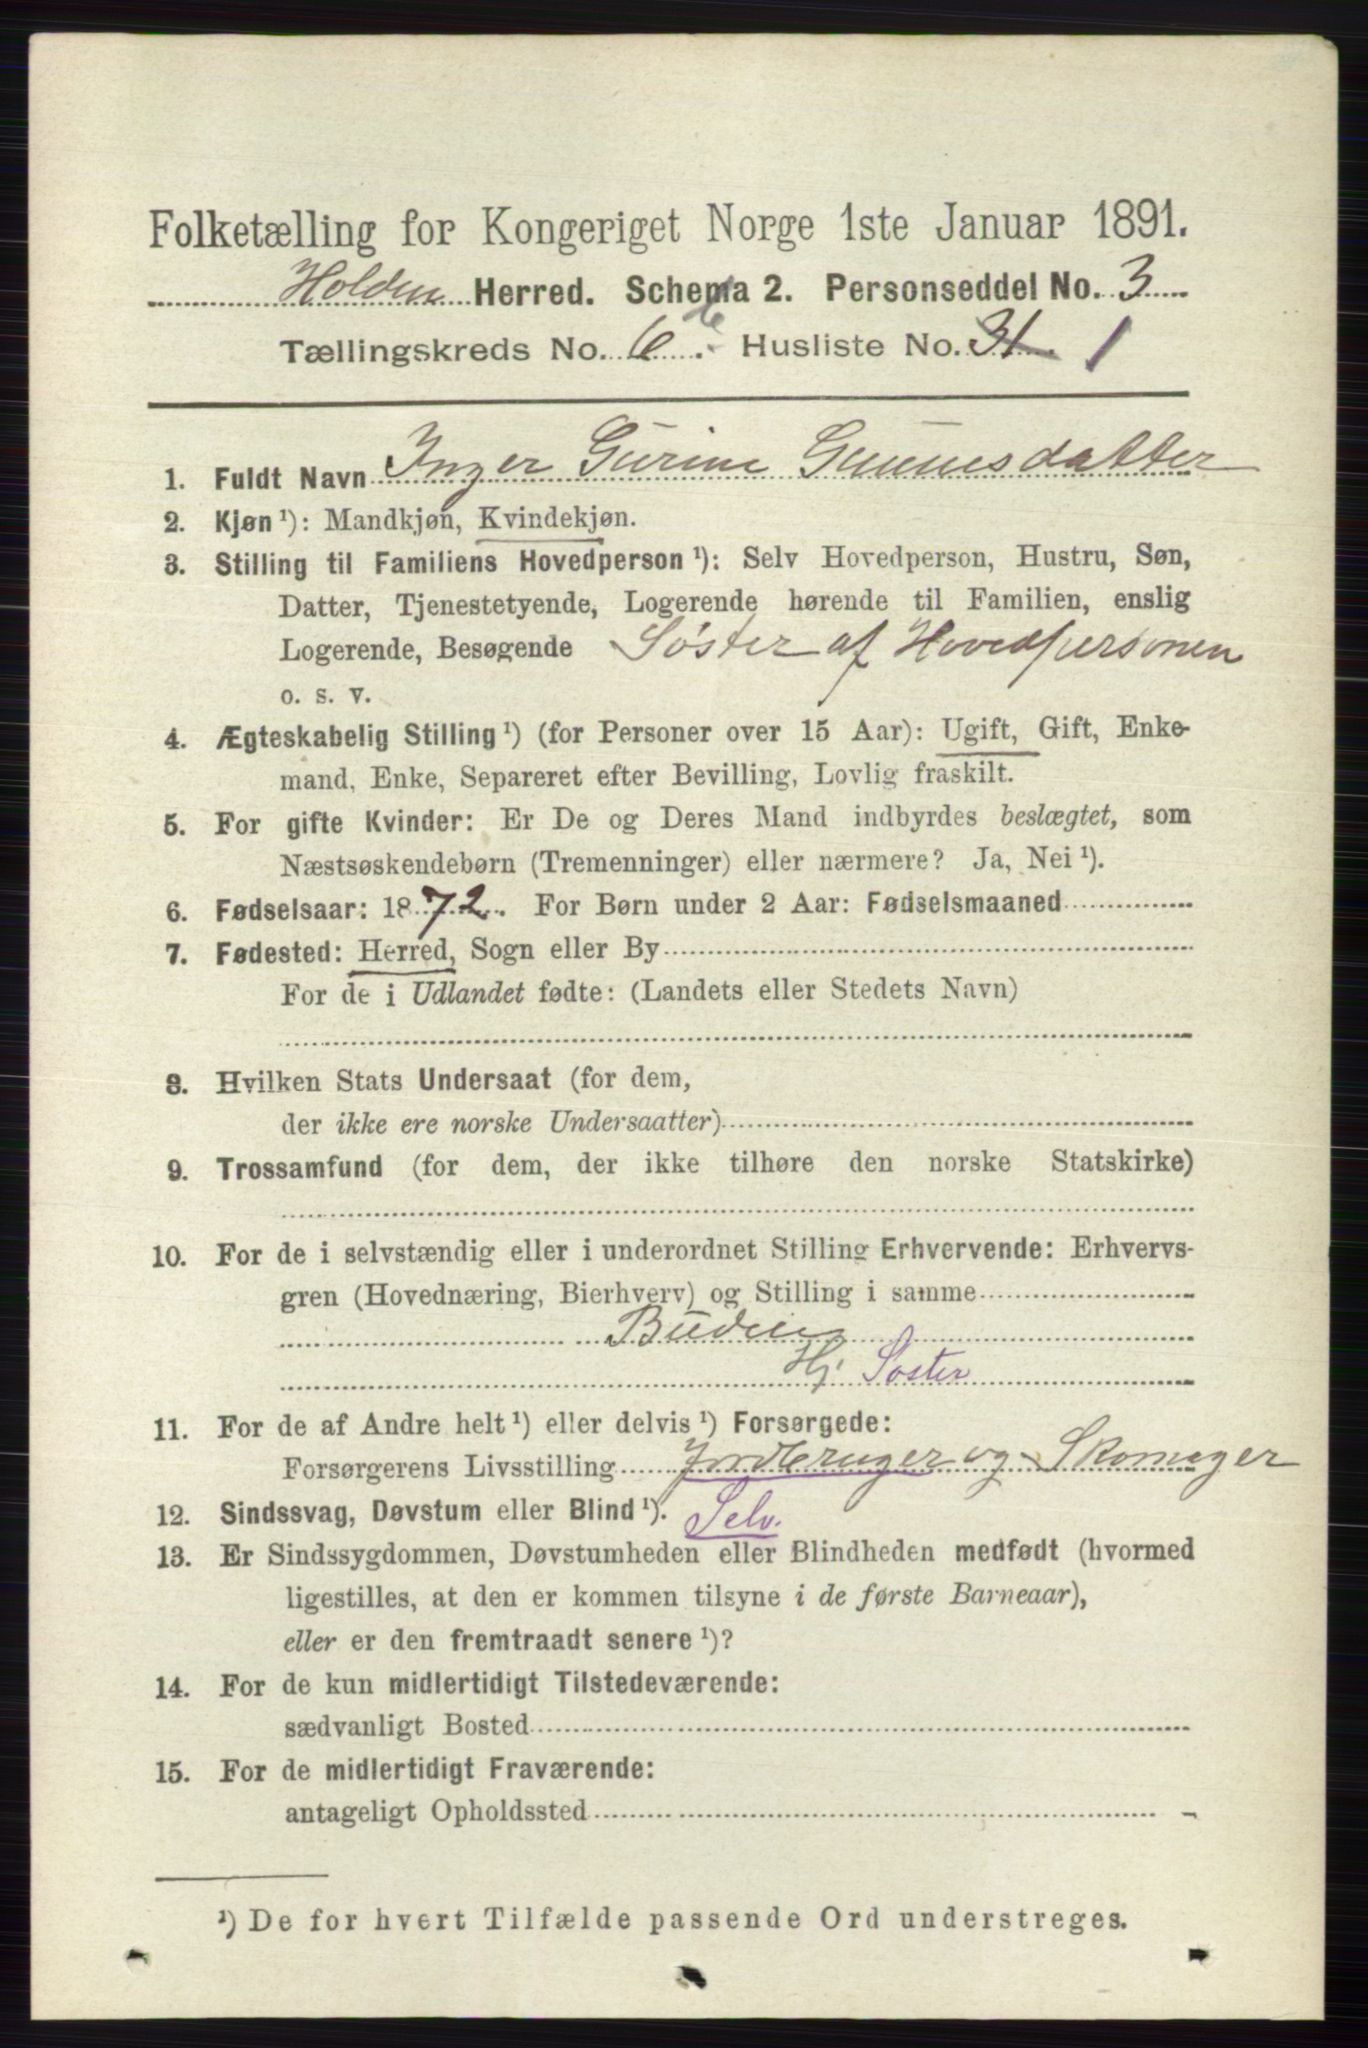 Folketælling for Kongeriget Norge 1ste Januar 1891.
Holden Herred. Schema 2. Personseddel No. 3
Tællingskreds No. 6. Husliste No. 31 1
1. Fuldt Navn Inger Gurine Gunnesdatter
2. Kjøn ¹): Mandkjøn, Kvindekjøn.
3. Stilling til Familiens Hovedperson ¹): Selv Hovedperson, Hustru, Søn,
Datter, Tjenestetyende, Logerende hørende til Familien, enslig
Logerende, Besøgende Søster af Hovedpersonen
o. s. v.
4. Ægteskabelig Stilling ¹) (for Personer over 15 Aar): Ugift, Gift, Enke-
mand, Enke, Separeret efter Bevilling, Lovlig fraskilt.
5. For gifte Kvinder: Er De og Deres Mand indbyrdes beslægtet, som
Næstsøskendebørn (Tremenninger) eller nærmere? Ja, Nei ¹).
6. Fødselsaar: 1872. For Børn under 2 Aar: Fødselsmaaned
7. Fødested: Herred, Sogn eller By
For de i Udlandet fødte: (Landets eller Stedets Navn)
8. Hvilken Stats Undersaat (for dem,
der ikke ere norske Undersaatter)
9. Trossamfund (for dem, der ikke tilhøre den norske Statskirke)
10. For de i selvstændig eller i underordnet Stilling Erhvervende: Erhvervs-
gren (Hovednæring, Bierhverv) og Stilling i samme
Budeie
Hj. Søster
11. For de af Andre helt ¹) eller delvis ¹) Forsørgede:
Forsørgerens Livsstilling Jordbruger og Skomager
12. Sindssvag, Døvstum eller Blind ¹). Selv.
13. Er Sindssygdommen, Døvstumheden eller Blindheden medfødt (hvormed
ligestilles, at den er kommen tilsyne i de første Barneaar),
eller er den fremtraadt senere ¹)?
14. For de kun midlertidigt Tilstedeværende:
sædvanligt Bosted
15. For de midlertidigt Fraværende:
antageligt Opholdssted
¹) De for hvert Tilfælde passende Ord understreges.